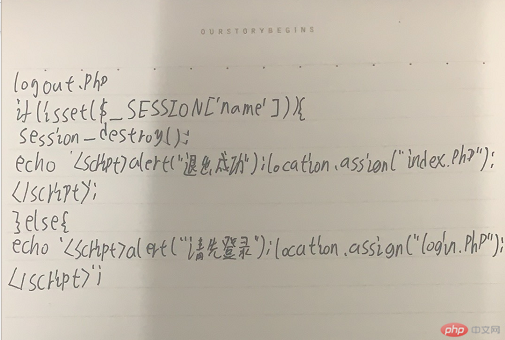 OURSTORYBEGINS
logout.php
if(isset($_SESSION['name'])){
session_destroy();
echo '<script>alert("退出成功");location.assign("index.PhP");
</script>';
}else{
echo '<script>alert("请先登录");location.assign("login.PhP");
</script>';
php 中文网